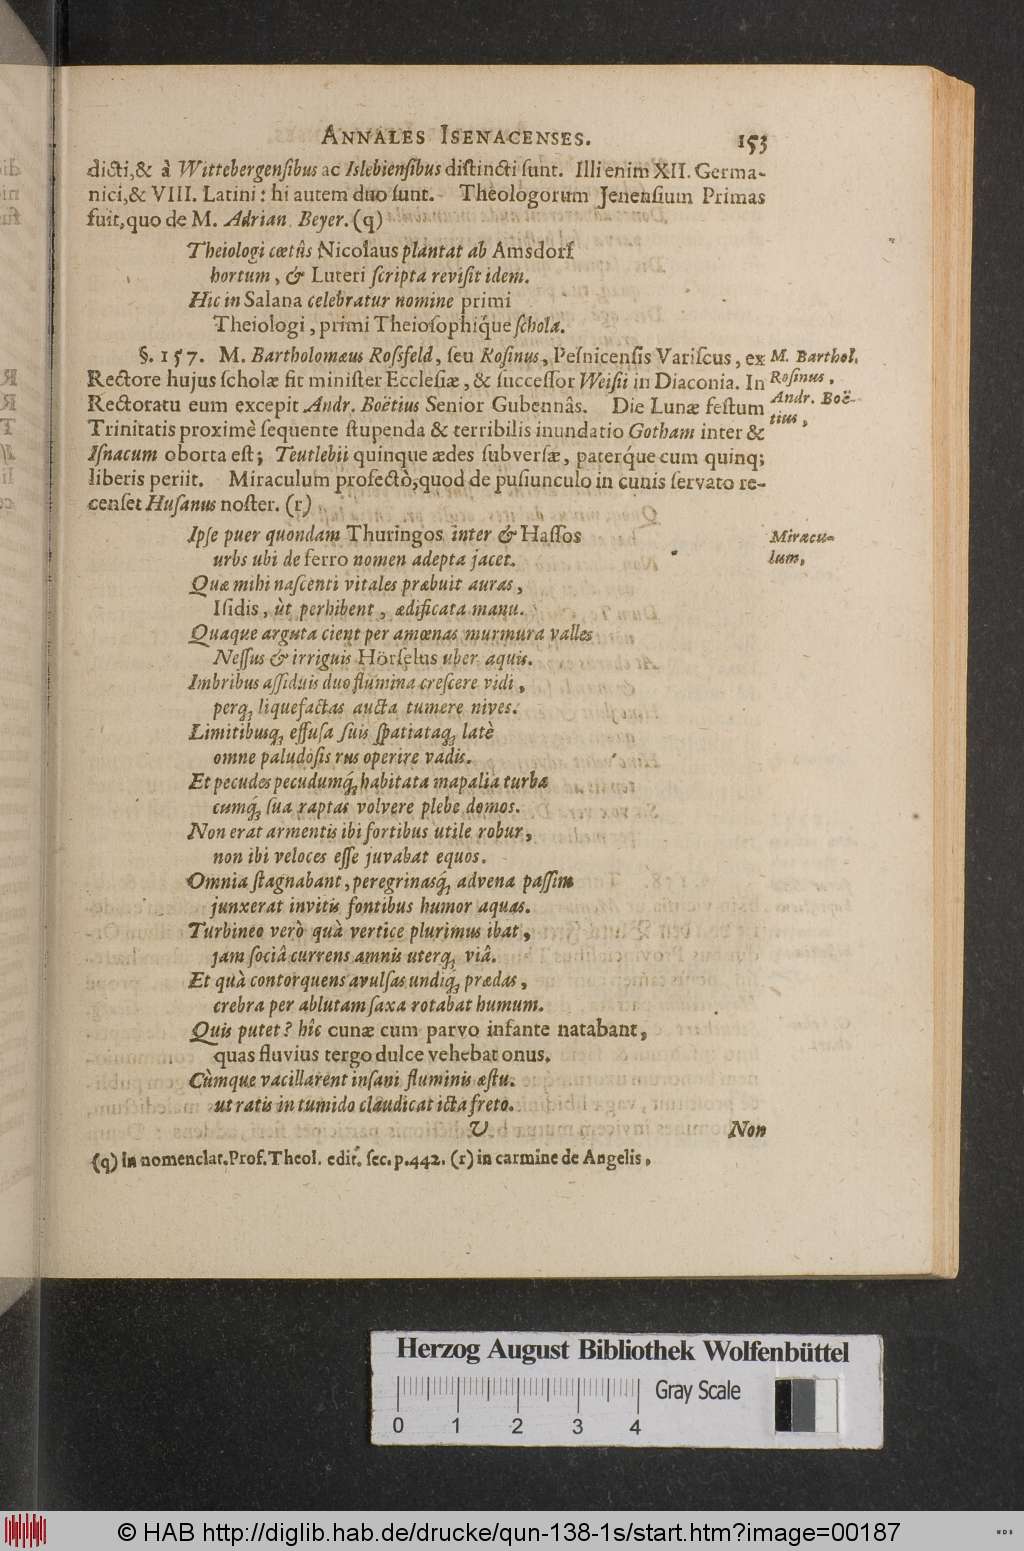 ANNALES ISENACENSES. 153
dicti,& à Wittebergenſibus ac Islebienſibus diſtincti ſunt. Illi enim XII. Germa-
nici,& VIII. Latini: hi autem duo ſunt. Theologorum Jenenſium Primas
fuit,quo de M. Adrian. Beyer. (q)
Theiologi cœtûs Nicolaus plantat ab Amsdorf
hortum, & Luteri ſcripta reviſit idem.
Hic in Salana celebratur nomine primi
Theiologi, primi Theioſophiq́ue ſchola.
§. 157. M. Bartholomæus Roſsfeld, ſeu Roſinus, Peſnicenſis Variſcus, ex
M. Barthol.
Roſinus,
Rectore hujus ſcholæ fit miniſter Eccleſiæ, & ſucceſſor Weiſii in Diaconia. In
Andr. Boë-
tius,
Rectoratu eum excepit Andr. Boëtius Senior Gubennâs. Die Lunæ feſtum
Trinitatis proximè ſequente ſtupenda & terribilis inundatio Gotham inter &
Iſnacum oborta eſt; Teutlebii quinque ædes ſubverſæ, paterq́ue cum quinq;
liberis periit. Miraculum profectò,quod de puſiunculo in cunis ſervato re-
cenſet Huſanus noſter. (r)
Ipſe puer quondam Thuringos inter & Haſſos
Miracu-
lum,
urbs ubi de ferro nomen adepta jacet.
Quæ mihi naſcenti vitales præbuit auras,
Iſidis, ùt perhibent, ædificata manu.
Quaque arguta cient per amœnas murmura valles
Neſſus & irriguis Hörſelus uber aquis.
Imbribus aſſiduis duo flumina creſcere vidi,
perq; liquefactas aucta tumere nives.
Limitibusq; effuſa ſuis ſpatiataq; latè
omne paludoſis rus operire vadis.
Et pecudes pecudumq́; habitata mapalia turbæ
cumq́; ſua raptas volvere plebe domos.
Non erat armentis ibi fortibus utile robur,
non ibi veloces eſſe juvabat equos.
Omnia ſtagnabant, peregrinasq́; advena paſſim
junxerat invitis fontibus humor aquas.
Turbineo verò quà vertice plurimus ibat,
jam ſociâ currens amnis uterq; viâ.
Et quà contorquens avulſas undiq́; prædas,
crebra per ablutam ſaxa rotabat humum.
Quis putet? hîc cunæ cum parvo infante natabant,
quas fluvius tergo dulce vehebat onus.
Cùmque vacillarent inſani fluminis æſtu.
ut ratis in tumido claudicat icta freto.
V Non
(q) in nomenclat. Prof. Theol. edit. ſec. p. 442. (r) in carmine de Angelis,
Herzog August Bibliothek Wolfenbüttel
Gray Scale
0 1 2 3 4
© HAB http://diglib.hab.de/drucke/qun-138-1s/start.htm?image=00187